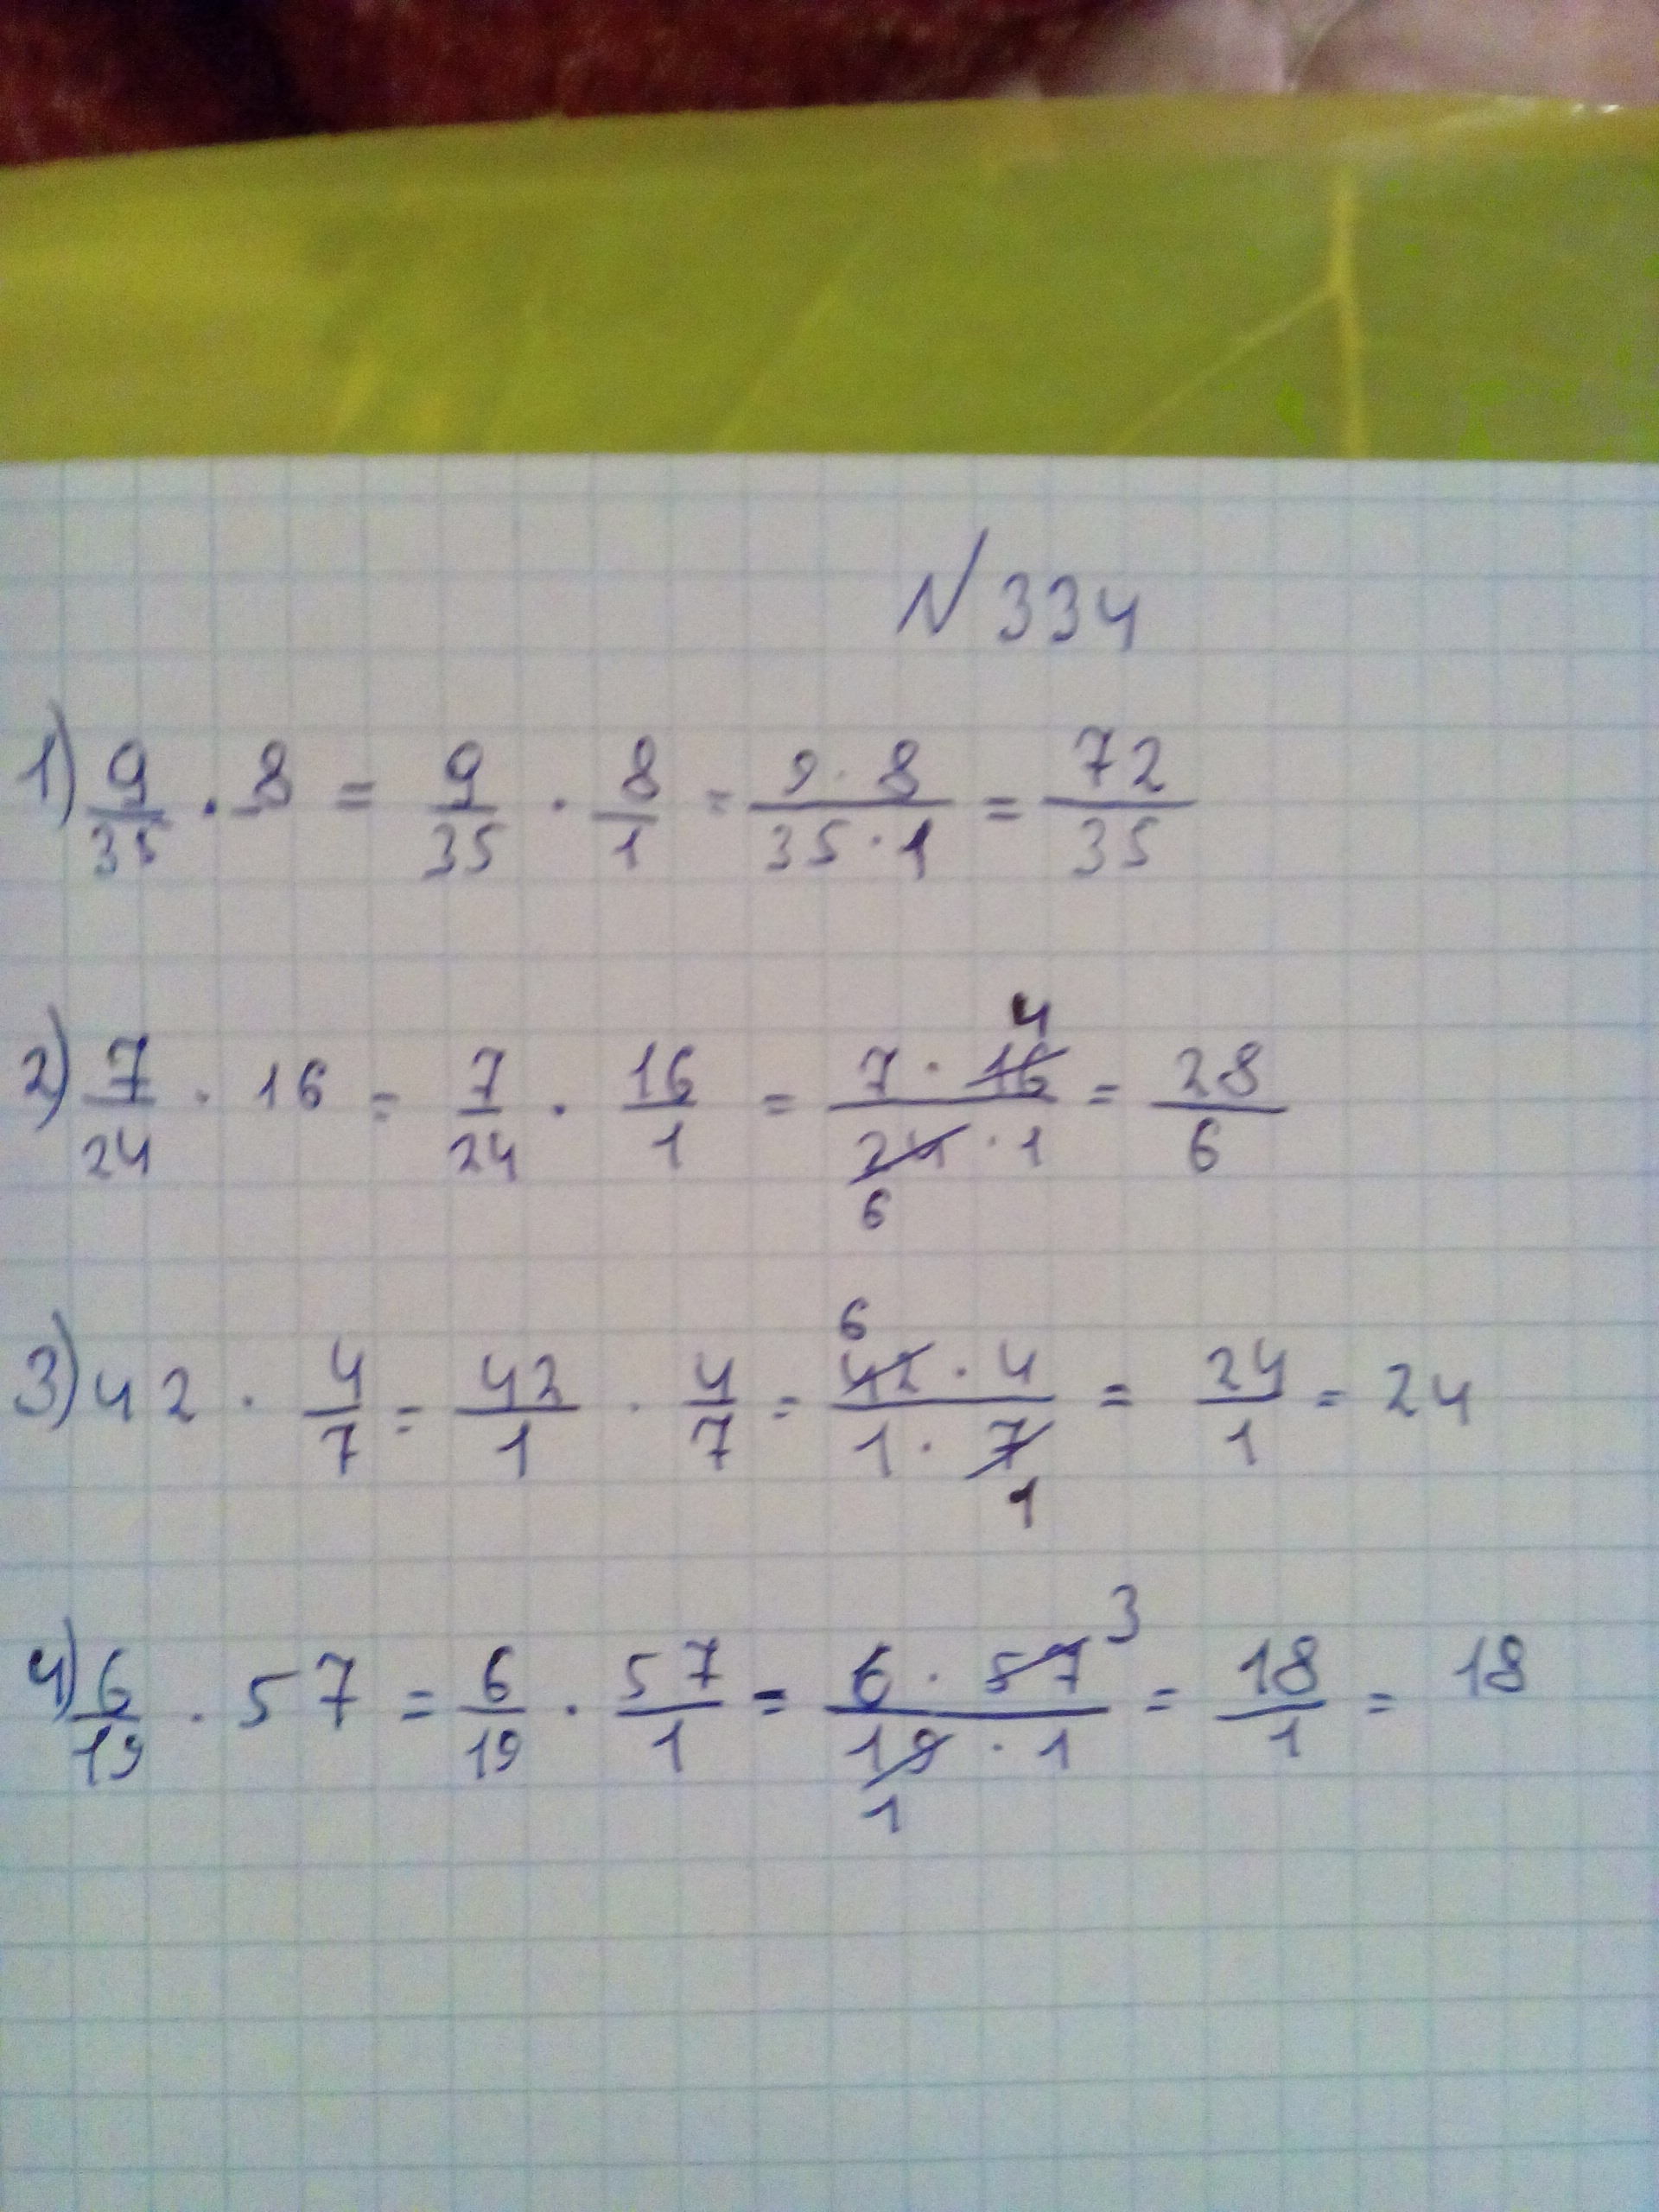 N 334
1) 9/35 · 8 = 9/35 · 8/1 = 9·8/35·1 = 72/35
2) 7/24 · 16 = 7/24 · 16/1 = 7·16 4/24 6·1 = 28/6
3) 42 · 4/7 = 42/1 · 4/7 = 6 42·4/1·7 1 = 24/1 = 24
4) 6/19 · 57 = 6/19 · 57/1 = 6·57 3/19 1·1 = 18/1 = 18